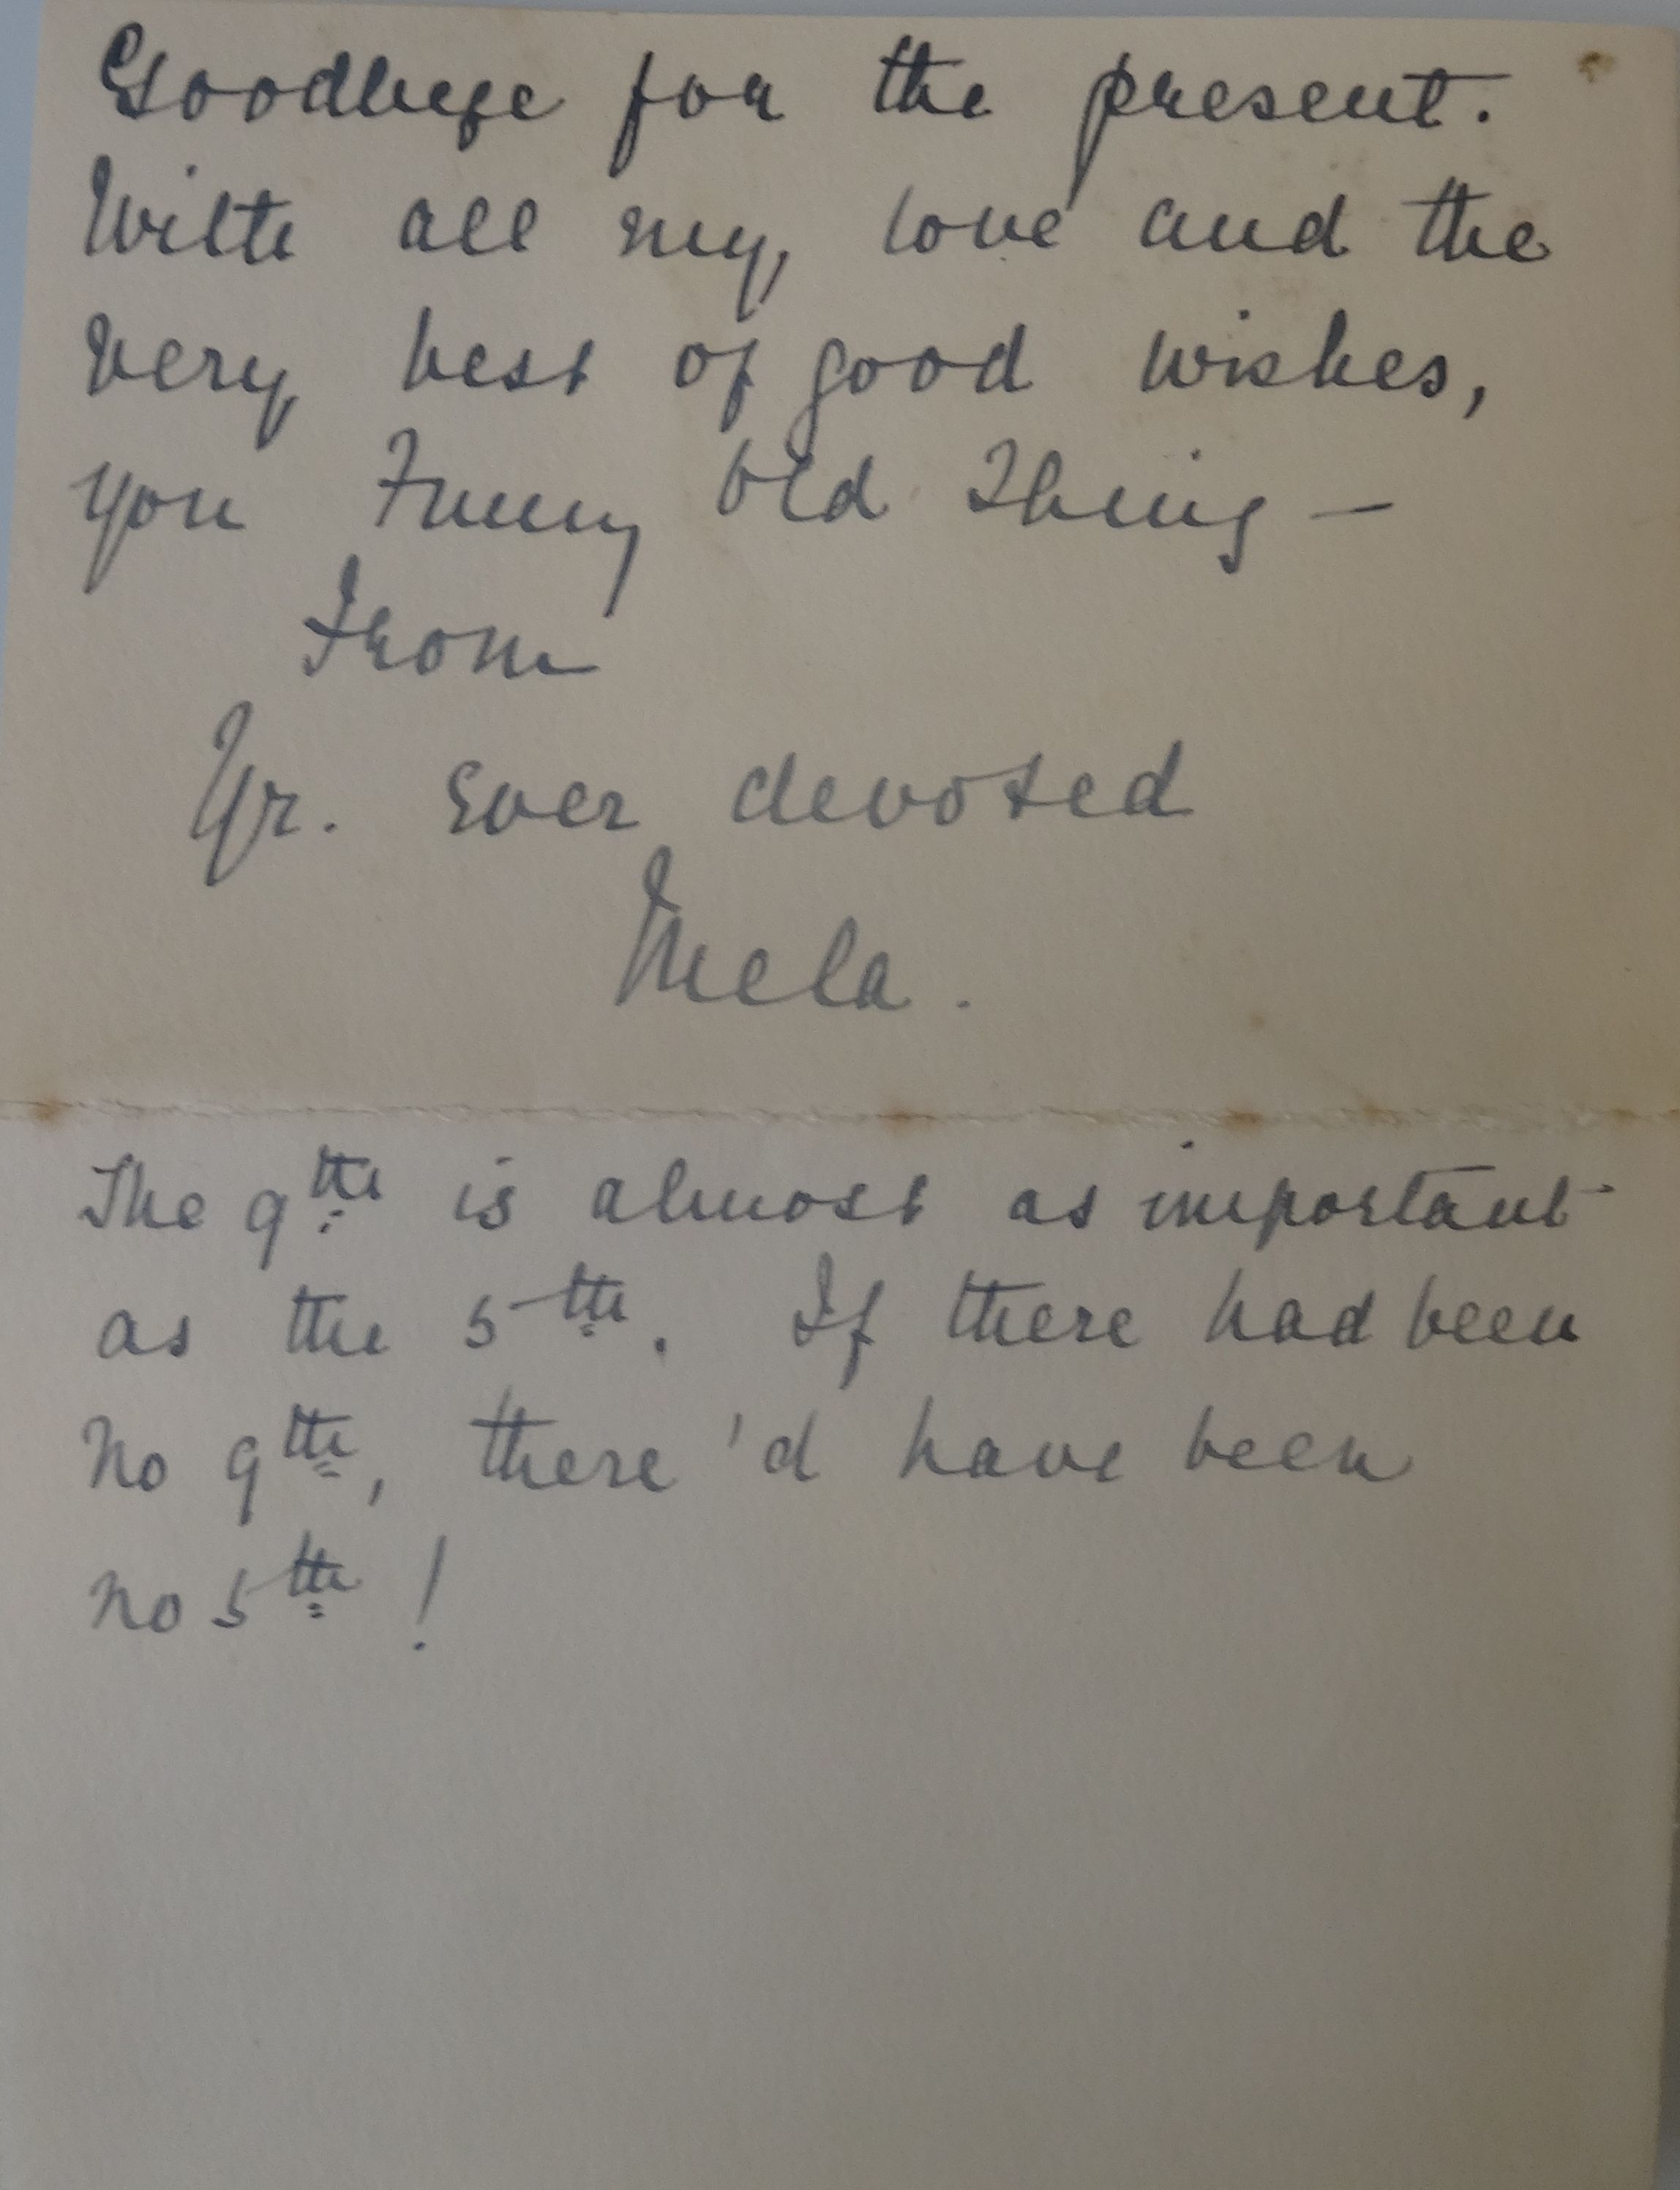 Goodbye for the present.
With all my love and the
very best of good wishes,
you Funny Old Thing —
From
Yr. Ever devoted
Mela.
The 9th is almost as important
as the 5th. If there had been
no 9th, there'd have been
no 5th!